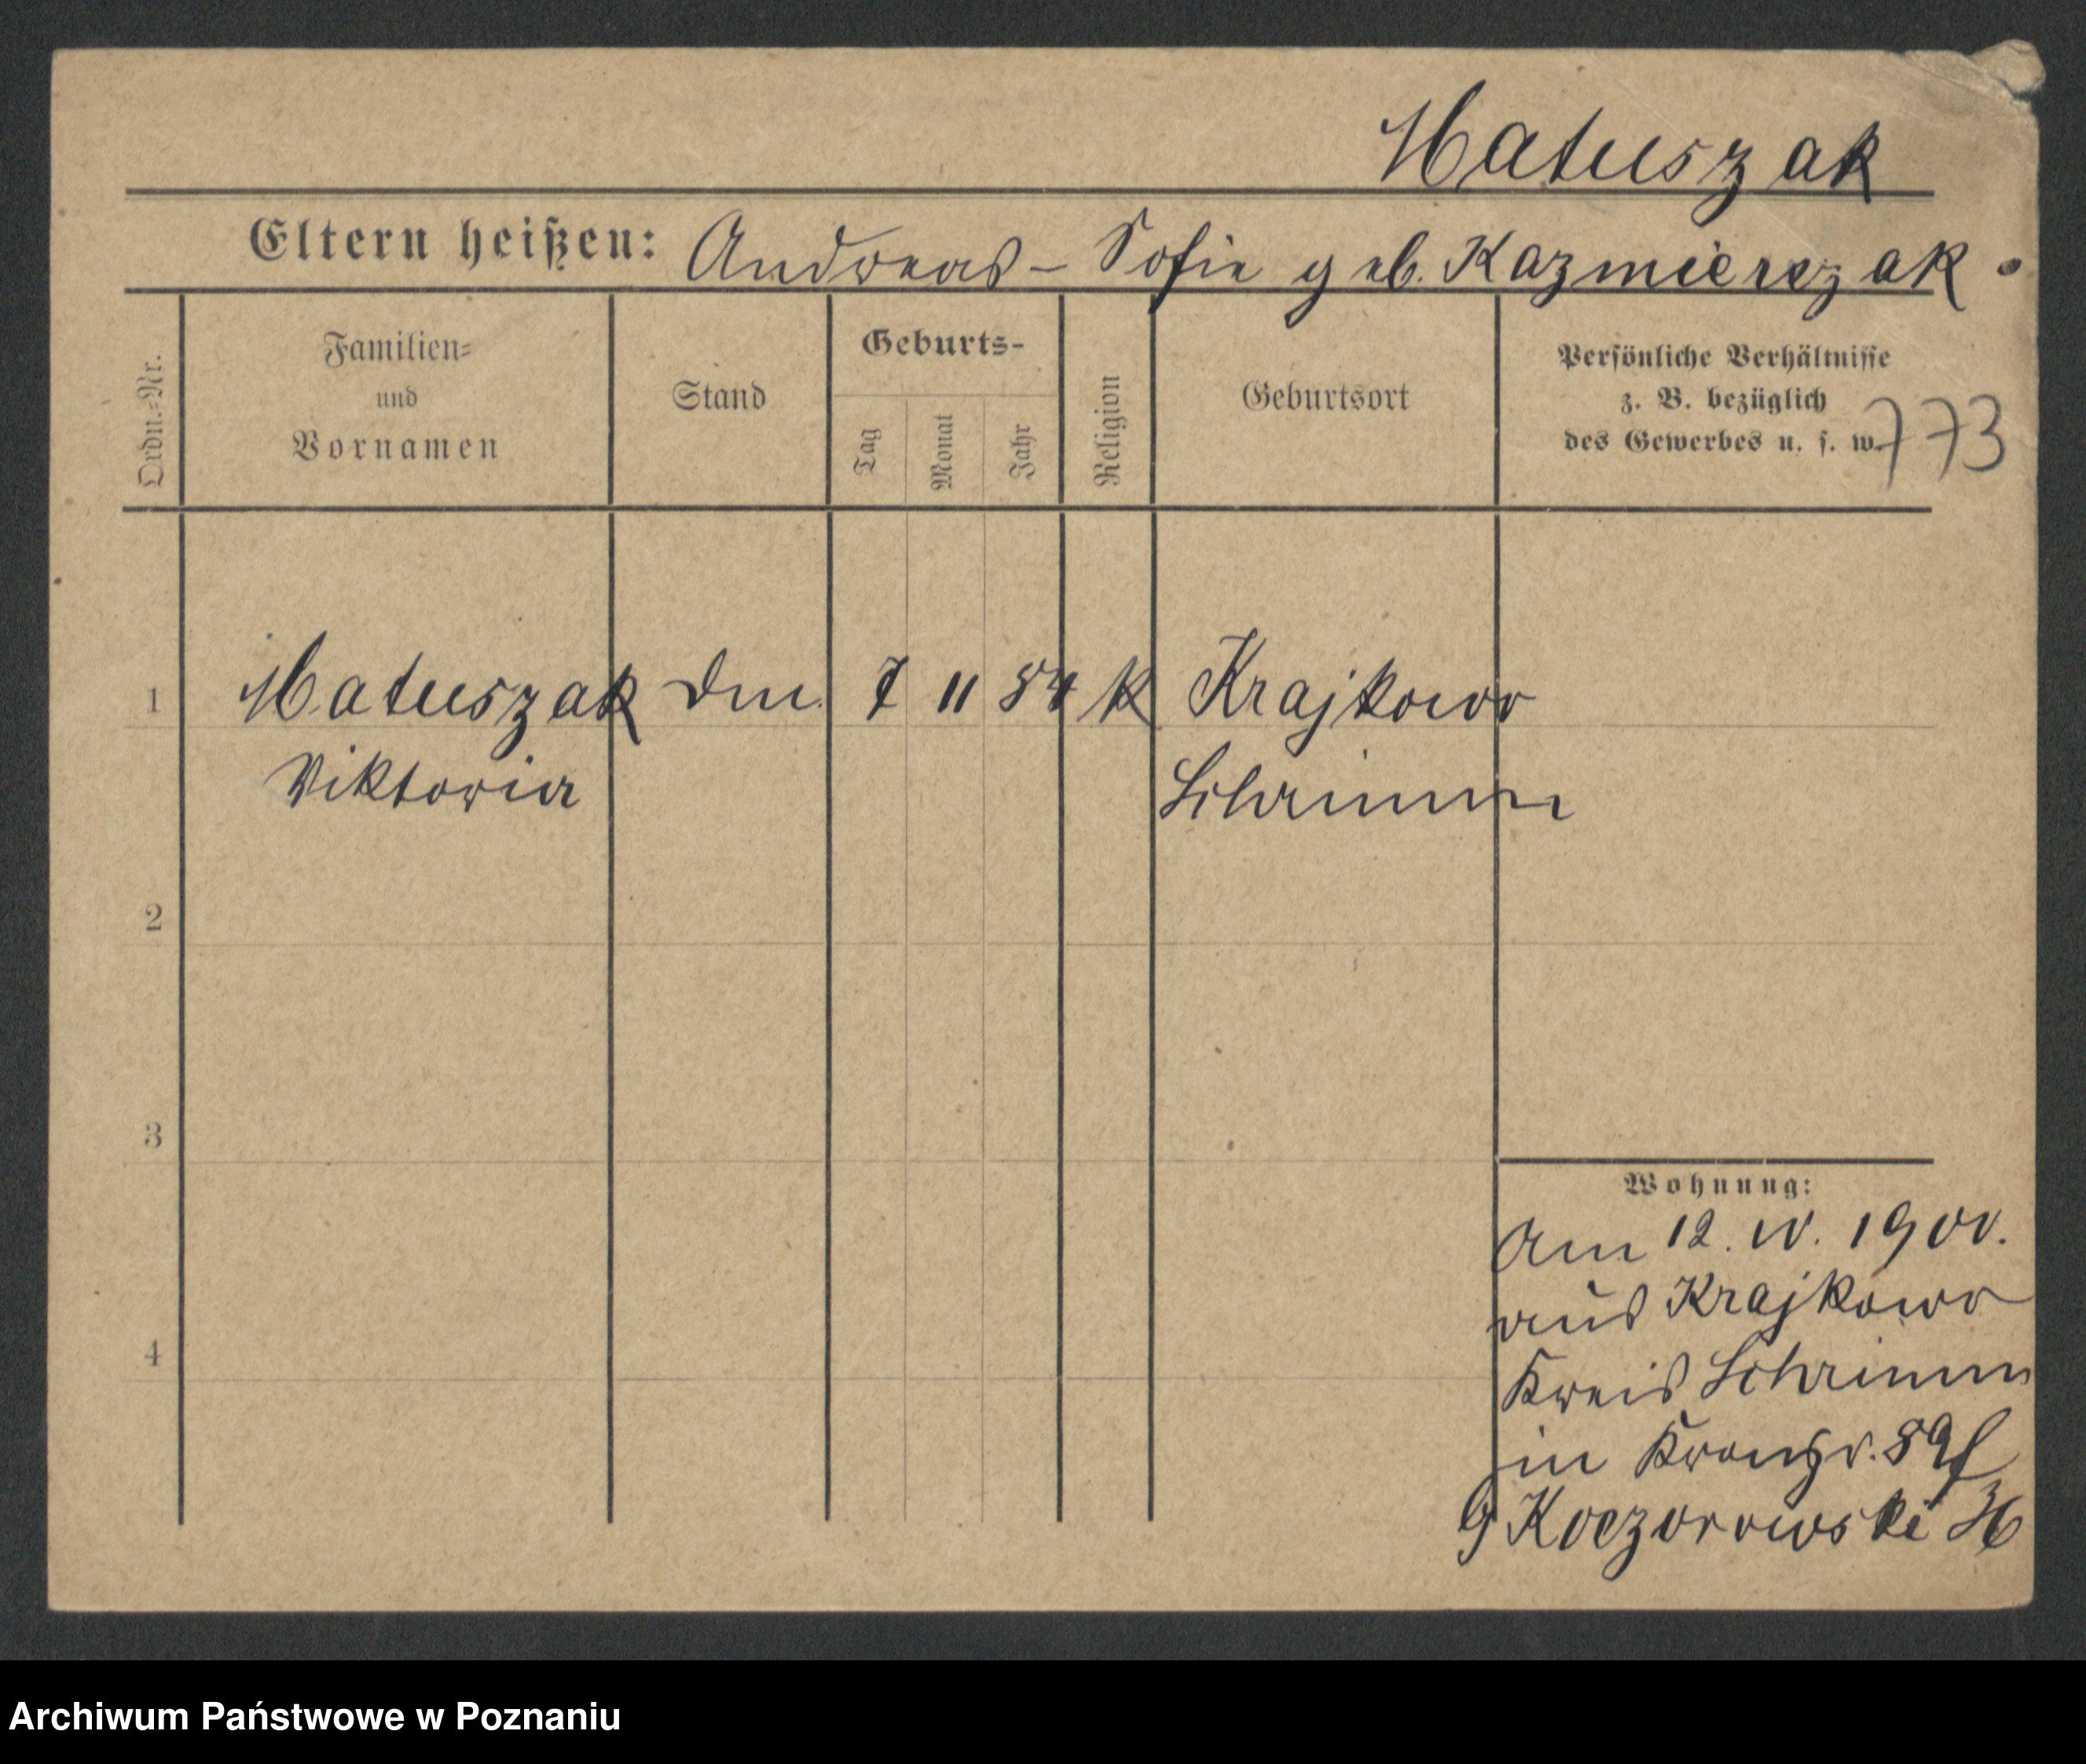 Matuszak
Eltern heißen: Andreas – Sofie geb. Kazmierczak.
Ordn.=Nr.
Familien=
und
Vornamen
Stand
Geburts-
Tag
Monat
Jahr
Religion
Geburtsort
Persönliche Verhältnisse
z. B. bezüglich
des Gewerbes u. s. w.
773
1 Matuszak 7 11 84 K Krajkowo
Viktoria Schrimm
2
3
4
Wohnung:
Am 12. IV. 1900.
aus Krajkowo
Kreis Schrimm
in
Koczorowski
Archiwum Państwowe w Poznaniu